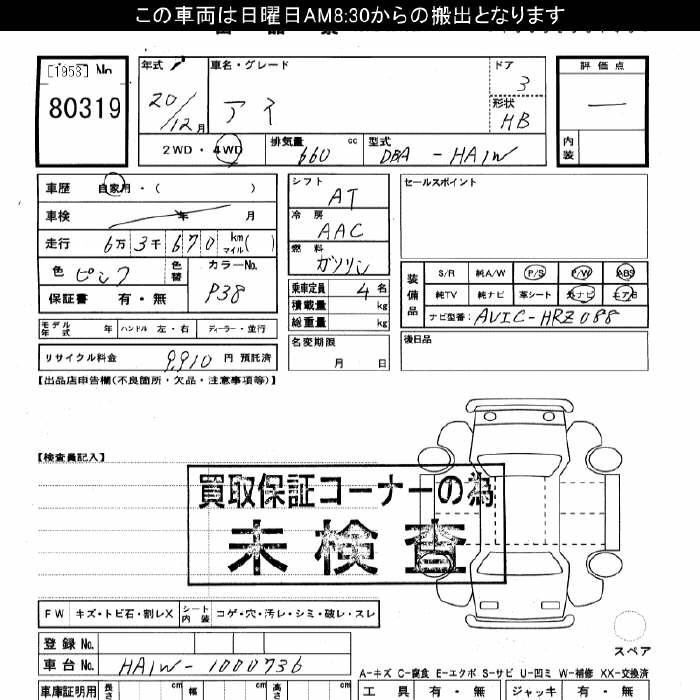 この車両は日曜日AM8:30からの搬出となります
[1953] No
80319
年式 車名・グレード ドア 評価点
20/12月 アイ 3 —
形状 HB
2WD・4WD 排気量 660 cc 型式 DBA-HA1W 内装
車歴 自家用・( )
車検 年 月
走行 6万3千670 km マイル ( )
色 ピンク 色替 カラーNo. P38
保証書 有・無
モデル年式 年 ハンドル 左・右 ディーラー・並行
リサイクル料金 9,910 円 預託済
シフト AT
冷房 AAC
燃料 ガソリン
乗車定員 4 名
積載量 kg
総重量 kg
名変期限 月 日
セールスポイント
装備品 S/R 純A/W P/S P/W ABS
純TV 純ナビ 革シート 外ナビ エアB
ナビ型番: AVIC-HRZ088
後日品
【出品店申告欄(不良箇所・欠品・注意事項等)】
【検査員記入】
買取保証コーナーの為
未検査
FW キズ・トビ石・割レX シート内装 コゲ・穴・汚レ・シミ・破レ・スレ
スペア
登録No.
車台No. HA1W-1000736
A-キズ C-腐食 E-エクボ S-サビ U-凹ミ W-補修 XX-交換済
車庫証明用 長さ cm 幅 cm 高さ cm 工具 有・無 ジャッキ 有・無